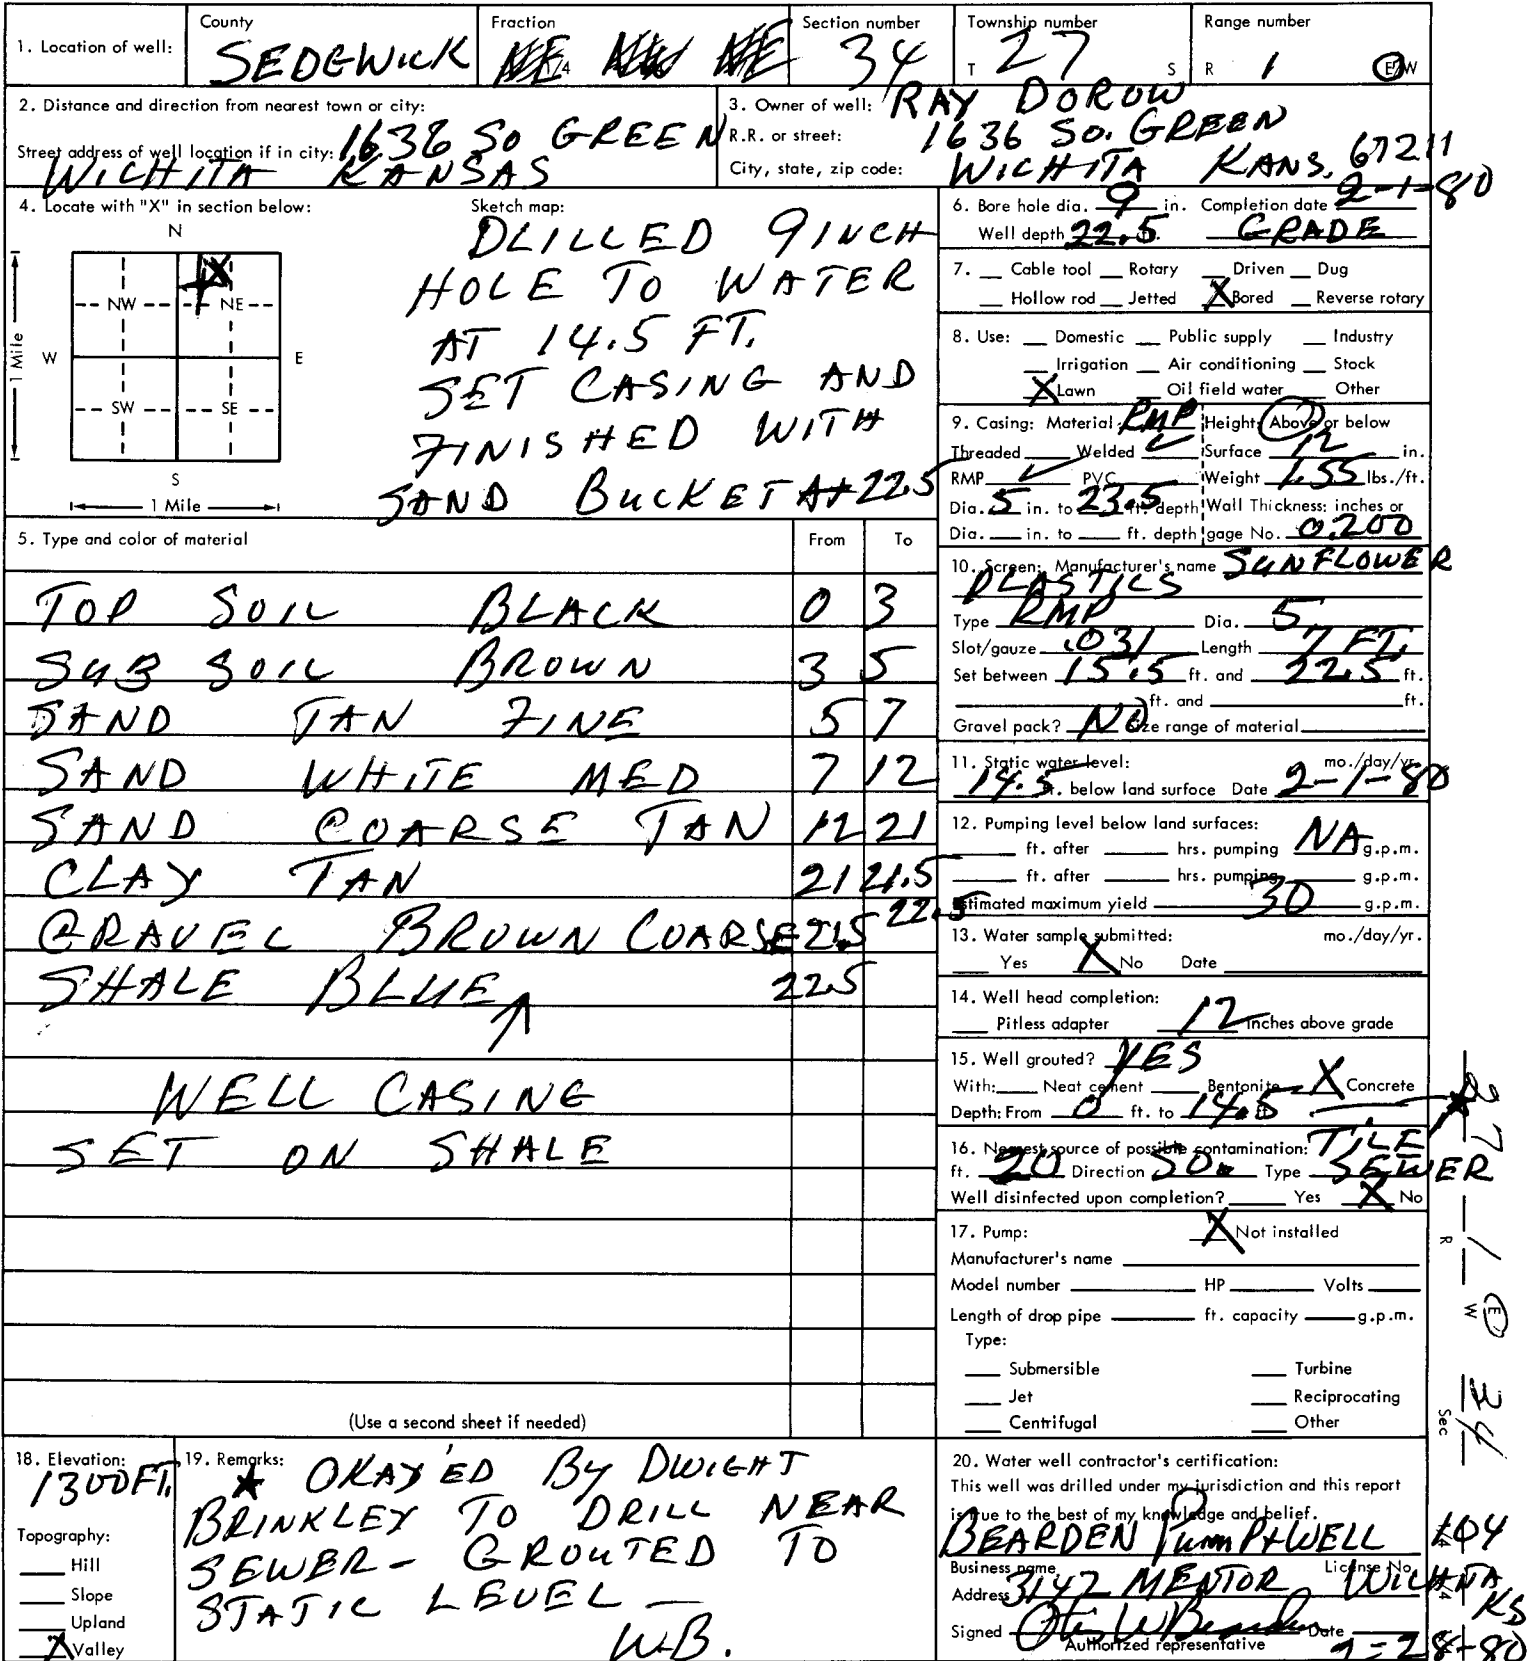 1. Location of well:
County
SEDGWICK
Fraction
NE 1/4 NW NE
Section number
34
Township number
T 27 S
Range number
R 1 E/W
2. Distance and direction from nearest town or city:
Street address of well location if in city: 1636 SO GREEN
WICHITA KANSAS
3. Owner of well: RAY DOROW
R.R. or street: 1636 SO. GREEN
City, state, zip code: WICHITA KANS. 67211
4. Locate with "X" in section below:
N
NW NE
W E
SW SE
S
1 Mile
1 Mile
X
Sketch map:
DLILLED 9 INCH
HOLE TO WATER
AT 14.5 FT.
SET CASING AND
FINISHED WITH
SAND BUCKET At 22.5
5. Type and color of material From To
TOP SOIL BLACK 0 3
SUB SOIL BROWN 3 5
SAND TAN FINE 5 7
SAND WHITE MED 7 12
SAND COARSE TAN 12 21
CLAY TAN 21 21.5
GRAVEL BROWN COARSE 21.5 22.5
SHALE BLUE 22.5
WELL CASING
SET ON SHALE
(Use a second sheet if needed)
6. Bore hole dia. 9 in. Completion date 2-1-80
Well depth 22.5 ft. GRADE
7. __ Cable tool __ Rotary __ Driven __ Dug
__ Hollow rod __ Jetted X Bored __ Reverse rotary
8. Use: __ Domestic __ Public supply __ Industry
__ Irrigation __ Air conditioning __ Stock
X Lawn __ Oil field water __ Other
9. Casing: Material RMP Height: Above or below
Threaded __ Welded ✓ Surface 12 in.
RMP ✓ PVC __ Weight 1.55 lbs./ft.
Dia. 5 in. to 23.5 ft. depth Wall Thickness: inches or
Dia. __ in. to __ ft. depth gage No. 0.200
10. Screen: Manufacturer's name SUNFLOWER
PLASTICS
Type RMP Dia. 5
Slot/gauze .031 Length 7 FT.
Set between 15.5 ft. and 22.5 ft.
__ ft. and __ ft.
Gravel pack? NO Size range of material __
11. Static water level: mo./day/yr.
14.5 ft. below land surface Date 2-1-80
12. Pumping level below land surfaces:
__ ft. after __ hrs. pumping NA g.p.m.
__ ft. after __ hrs. pumping __ g.p.m.
Estimated maximum yield 30 g.p.m.
13. Water sample submitted: mo./day/yr.
__ Yes X No Date __
14. Well head completion:
__ Pitless adapter 12 Inches above grade
15. Well grouted? YES
With: __ Neat cement __ Bentonite X Concrete
Depth: From 0 ft. to 14.5 ft.
16. Nearest source of possible contamination: TILE
ft. 20 Direction SO. Type SEWER
Well disinfected upon completion? __ Yes X No
17. Pump: X Not installed
Manufacturer's name __
Model number __ HP __ Volts __
Length of drop pipe __ ft. capacity __ g.p.m.
Type:
__ Submersible __ Turbine
__ Jet __ Reciprocating
__ Centrifugal __ Other
18. Elevation:
1300 FT.
Topography:
__ Hill
__ Slope
__ Upland
X Valley
19. Remarks:
★ OKAY'ED BY DWIGHT
BRINKLEY TO DRILL NEAR
SEWER - GROUTED TO
STATIC LEVEL —
W.B.
20. Water well contractor's certification:
This well was drilled under my jurisdiction and this report
is true to the best of my knowledge and belief.
BEARDEN Pump & WELL 104
Business name License No.
Address 3147 MENTOR WICHITA
KS
Signed Otis W Bearden Date
Authorized representative 2-28-80
27
R 1 E W
Sec 34
1/4
1/4